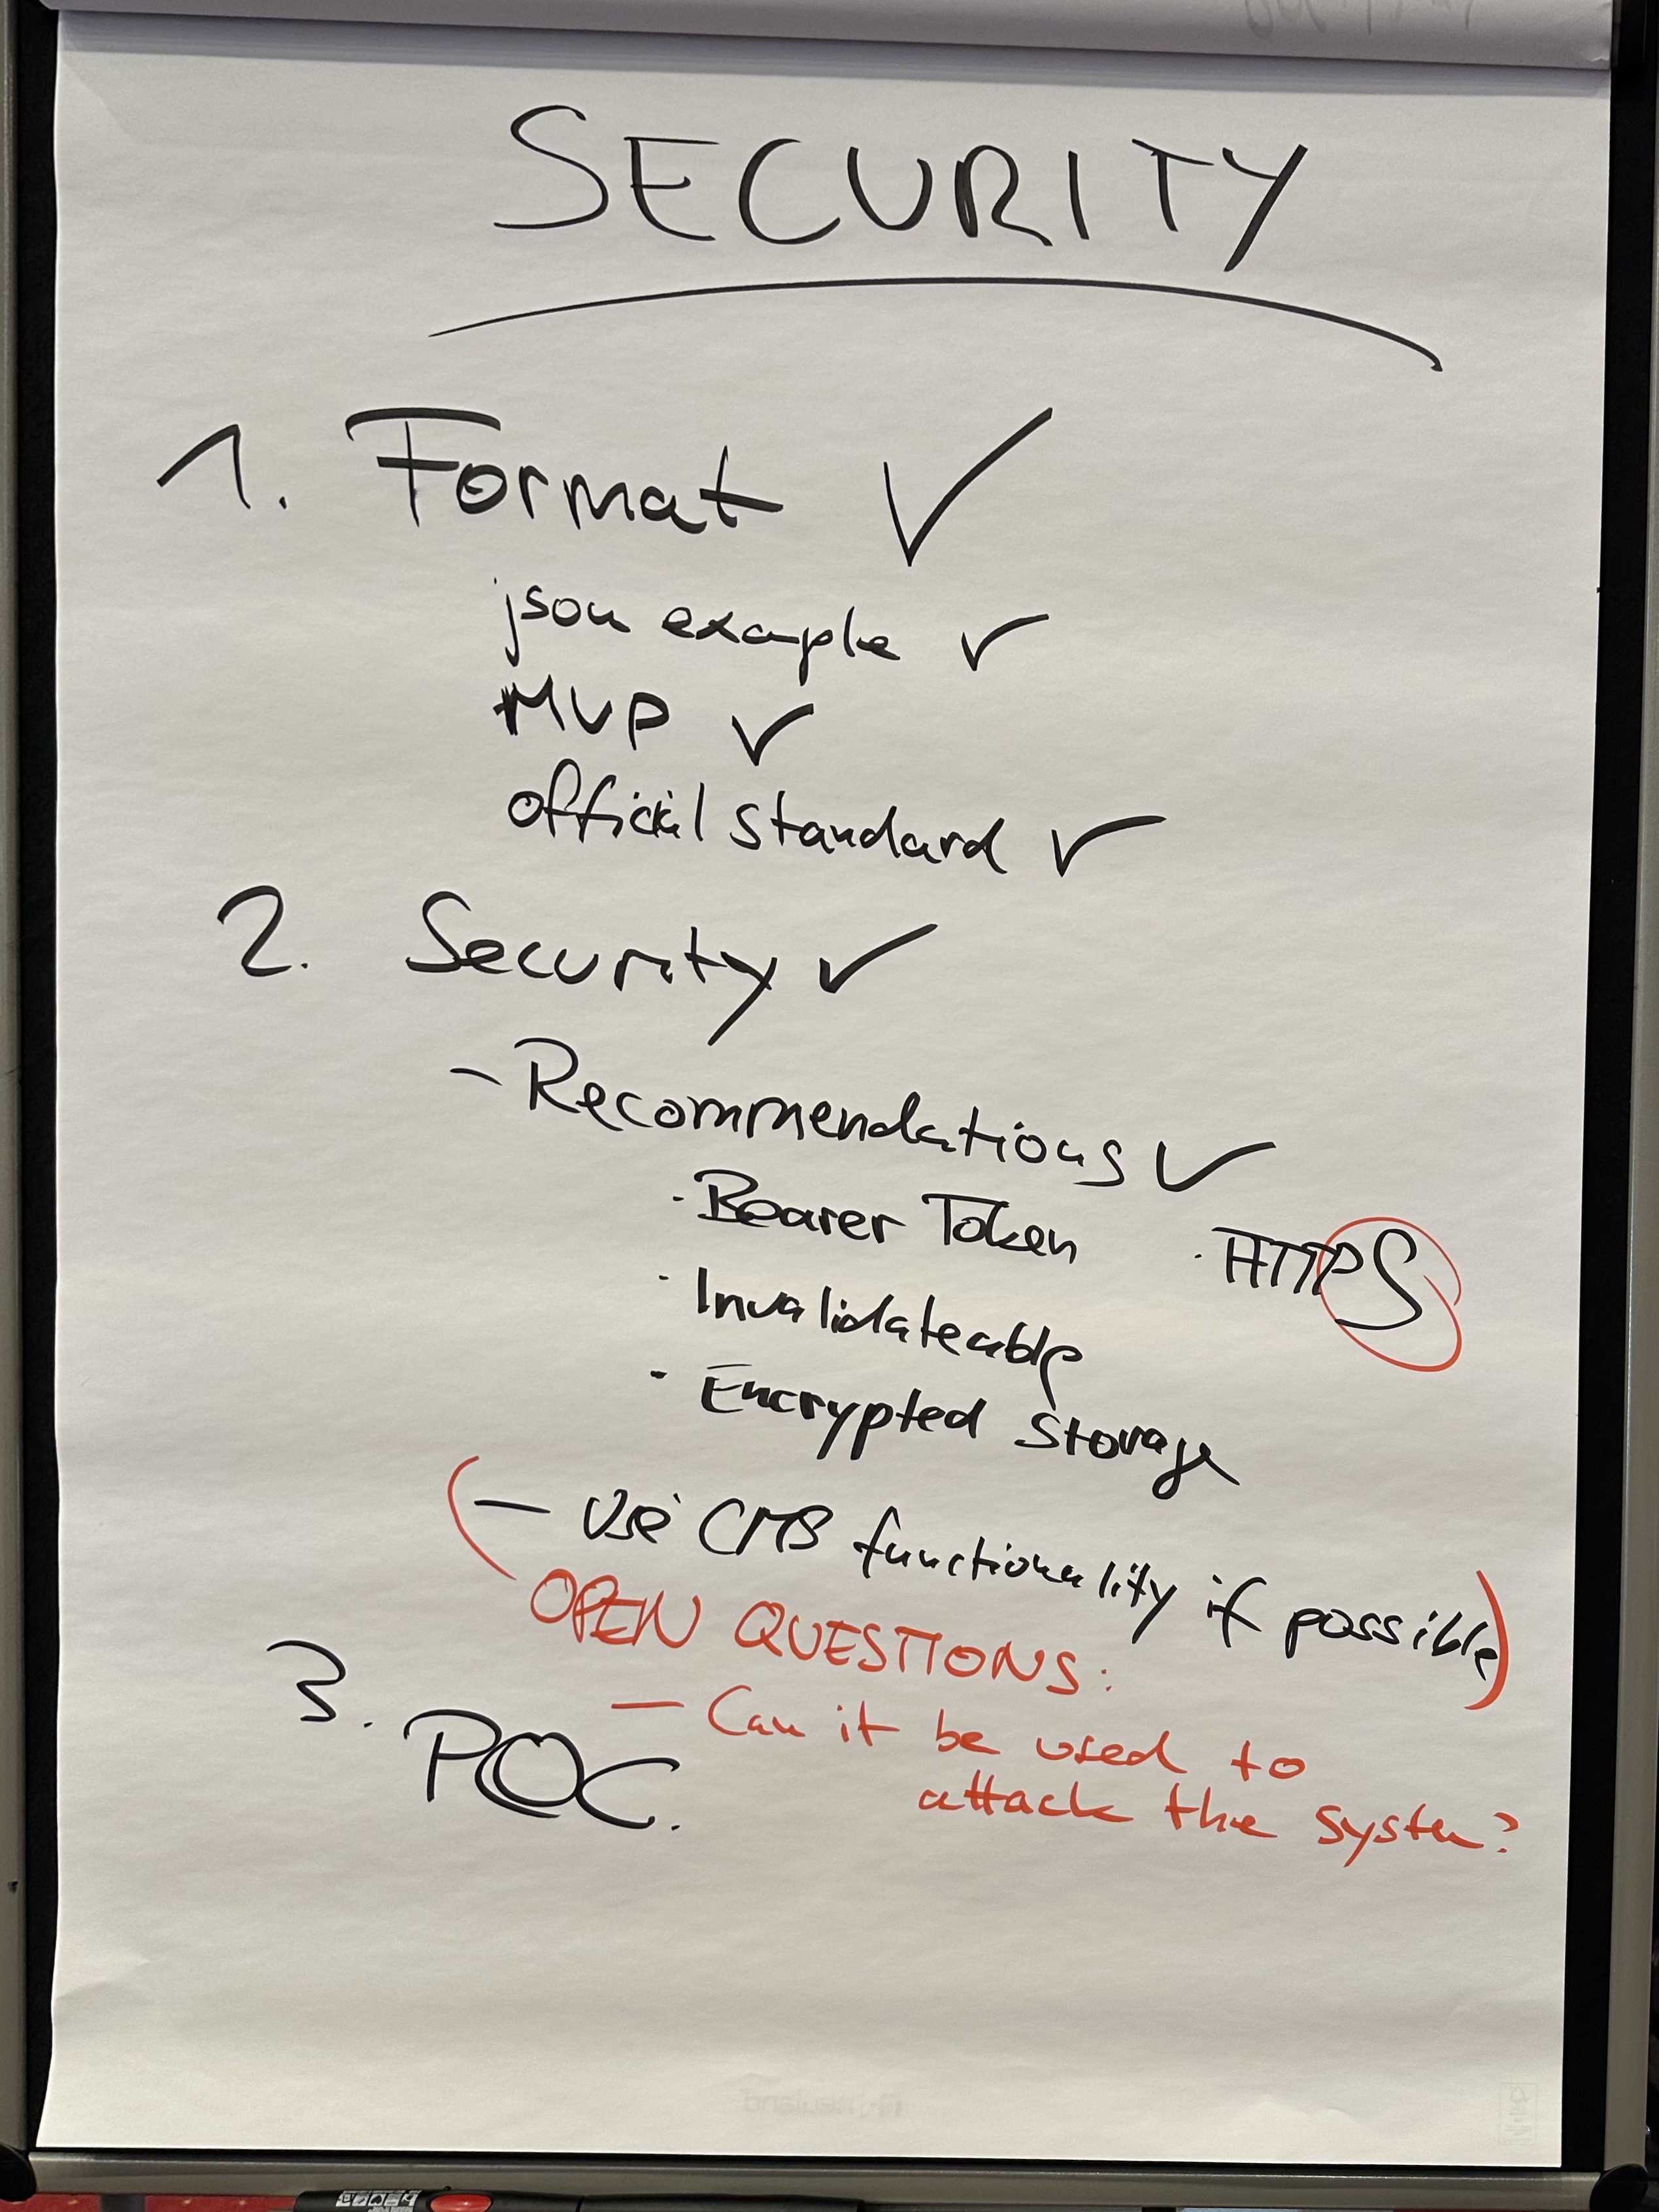 SECURITY
1. Format ✓
json example ✓
MVP ✓
official standard ✓
2. Security ✓
- Recommendations ✓
· Bearer Token
· HTTPS
· Invalidateable
· Encrypted Storage
(- Use CMS functionality if possible)
OPEN QUESTIONS:
- Can it be used to
attack the system?
3. POC.
neuland